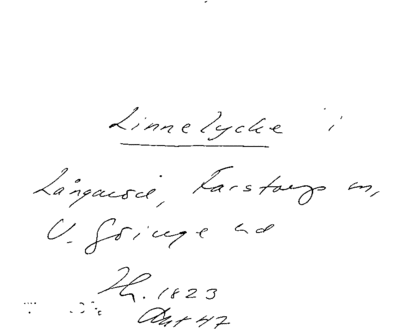 Linnelycke i
Långaröd, Farstorps sn,
V. Göinge hd
Th. 1823
Akt 47